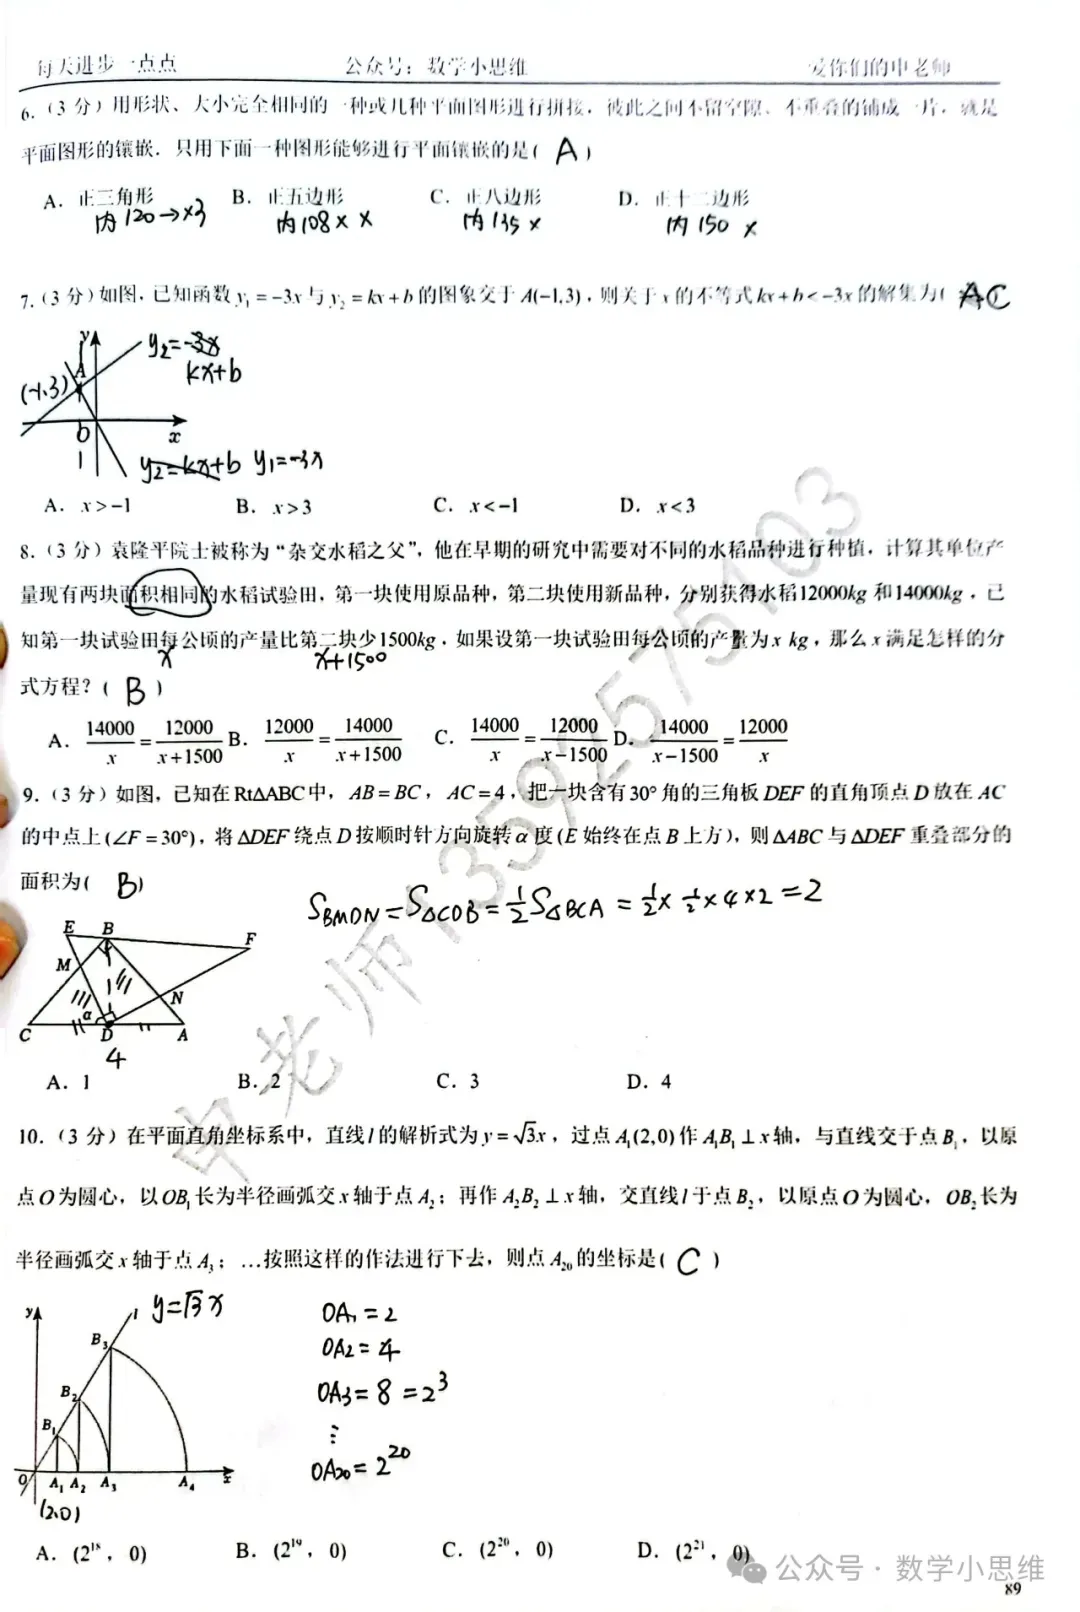 每天进步一点点 公众号：数学小思维 爱你们的申老师
6.（3 分）用形状、大小完全相同的一种或几种平面图形进行拼接，彼此之间不留空隙、不重叠的铺成一片，就是
平面图形的镶嵌．只用下面一种图形能够进行平面镶嵌的是( A )
A．正三角形 B．正五边形 C．正八边形 D．正十二边形
内120→×3 内108× × 内135 × 内150 ×
7.（3 分）如图，已知函数 y₁ = −3x 与 y₂ = kx + b 的图象交于 A(−1,3)，则关于 x 的不等式 kx + b < −3x 的解集为( AC
y y₂=-3x
A kx+b
(-1,3)
b x
1 y₂=kx+b y₁=-3x
A．x > −1 B．x > 3 C．x < −1 D．x < 3
8.（3 分）袁隆平院士被称为“杂交水稻之父”，他在早期的研究中需要对不同的水稻品种进行种植，计算其单位产
量现有两块面积相同的水稻试验田，第一块使用原品种，第二块使用新品种，分别获得水稻12000kg 和14000kg，已
知第一块试验田每公顷的产量比第二块少1500kg，如果设第一块试验田每公顷的产量为 x kg，那么 x 满足怎样的分
x x+1500
式方程？( B )
A．14000/x = 12000/(x+1500) B．12000/x = 14000/(x+1500) C．14000/x = 12000/(x−1500) D．14000/(x−1500) = 12000/x
9.（3 分）如图，已知在 Rt△ABC 中，AB = BC，AC = 4，把一块含有30° 角的三角板 DEF 的直角顶点 D 放在 AC
的中点上 (∠F = 30°)，将 △DEF 绕点 D 按顺时针方向旋转 α 度 (E 始终在点 B 上方)，则 △ABC 与 △DEF 重叠部分的
面积为( B )
S_BMDN = S△CDB = 1/2 S△BCA = 1/2 × 1/2 × 4 × 2 = 2
E B F
M
N
α
C D A
4
A．1 B．2 C．3 D．4
10.（3 分）在平面直角坐标系中，直线 l 的解析式为 y = √3x，过点 A₁(2,0) 作 A₁B₁ ⊥ x 轴，与直线交于点 B₁，以原
点 O 为圆心，以 OB₁ 长为半径画弧交 x 轴于点 A₂；再作 A₂B₂ ⊥ x 轴，交直线 l 于点 B₂，以原点 O 为圆心，OB₂ 长为
半径画弧交 x 轴于点 A₃；…按照这样的作法进行下去，则点 A₂₀ 的坐标是( C )
y l y=√3x OA₁=2
B₃ OA₂=4
B₂ OA₃=8=2³
B₁ ⋮
OA₂₀=2²⁰
O A₁ A₂ A₃ A₄ x
(2,0)
A．(2¹⁸，0) B．(2¹⁹，0) C．(2²⁰，0) D．(2²¹，0)
公众号 · 数学小思维
89
申老师13592575103